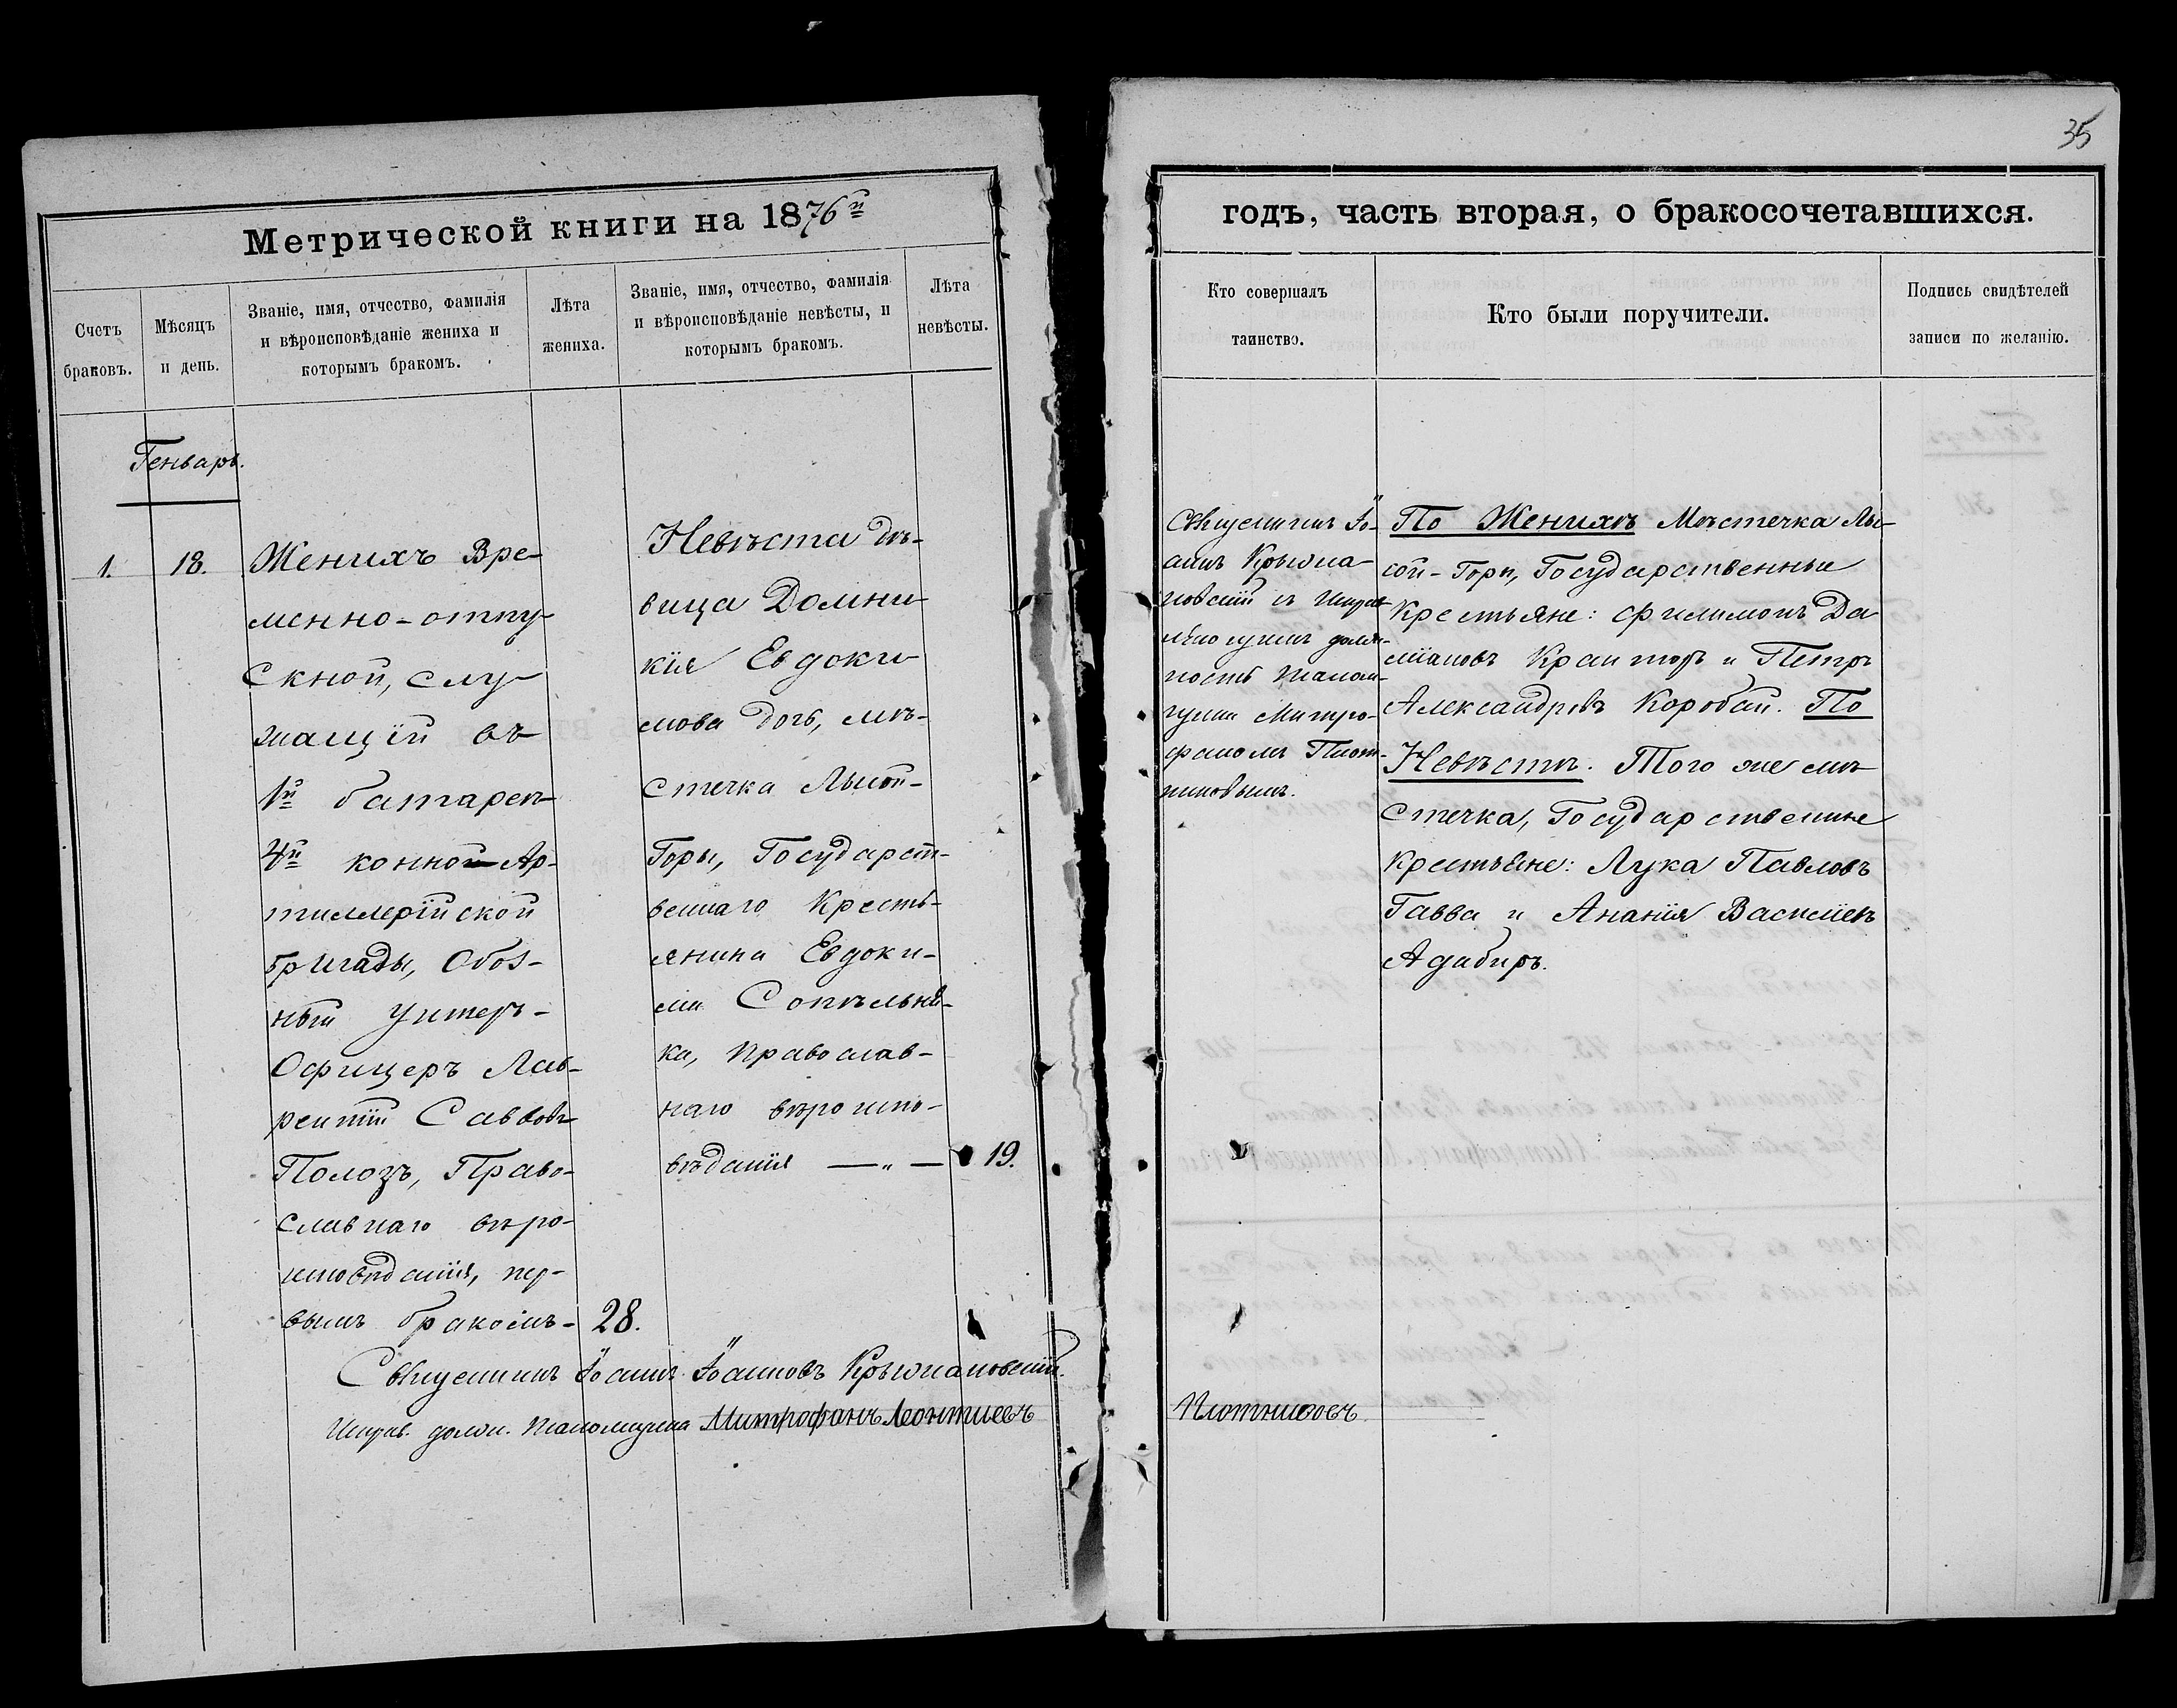 35
Метрической книги на 1876й
годъ, часть вторая, о бракосочетавшихся.
Счетъ браковъ.
Мѣсяцъ и день.
Званіе, имя, отчество, фамилія
и вѣроисповѣданіе жениха и
которымъ бракомъ.
Лѣта
жениха.
Званіе, имя, отчество, фамилія
и вѣроисповѣданіе невѣсты, и
которымъ бракомъ.
Лѣта
невѣсты.
Кто совершалъ
таинство.
Кто были поручители.
Подпись свидѣтелей
записи по желанію.
Генварь.
1.
18.
Женихъ Вре-
менно-отпу-
скной, слу-
жащій въ
1й батареѣ
4й конной Ар-
тиллерійской
бригады, Обоз-
ный Унтеръ-
Офицеръ Лав-
рентій Саввовъ
Полозъ, Право-
славнаго вѣро-
исповѣданія, пер-
вымъ бракомъ-
28.
Невѣста дѣ-
вица Домни-
кія Евдоки-
мова дочь, мѣ-
стечка Лысой-
Горы, Государст-
веннаго Кресть-
янина Евдоки-
ма Сопѣльни-
ка, православ-
наго вѣроиспо-
вѣданія — „ —
19.
Священникъ Іо-
аннъ Крыжа-
новскій съ Исправ-
ляющимъ долж-
ность Псалом-
щика Митро-
фаномъ Плот-
никовымъ.
По Женихѣ Мѣстечка Лы-
сой-Горы, Государственные
Крестьяне: Филимонъ Да-
міановъ и Петръ
Александровъ Коробай. По
Невѣстѣ. Того же мѣ-
стечка, Государственные
крестьяне: Лука Павловъ
Гавва и Ананія Васильевъ
Адабиръ.
Священникъ Іоаннъ Іоанновъ Крыжановскій.
Исправ. долж. Псаломщика Митрофанъ Леонтиевъ
Плотниковъ